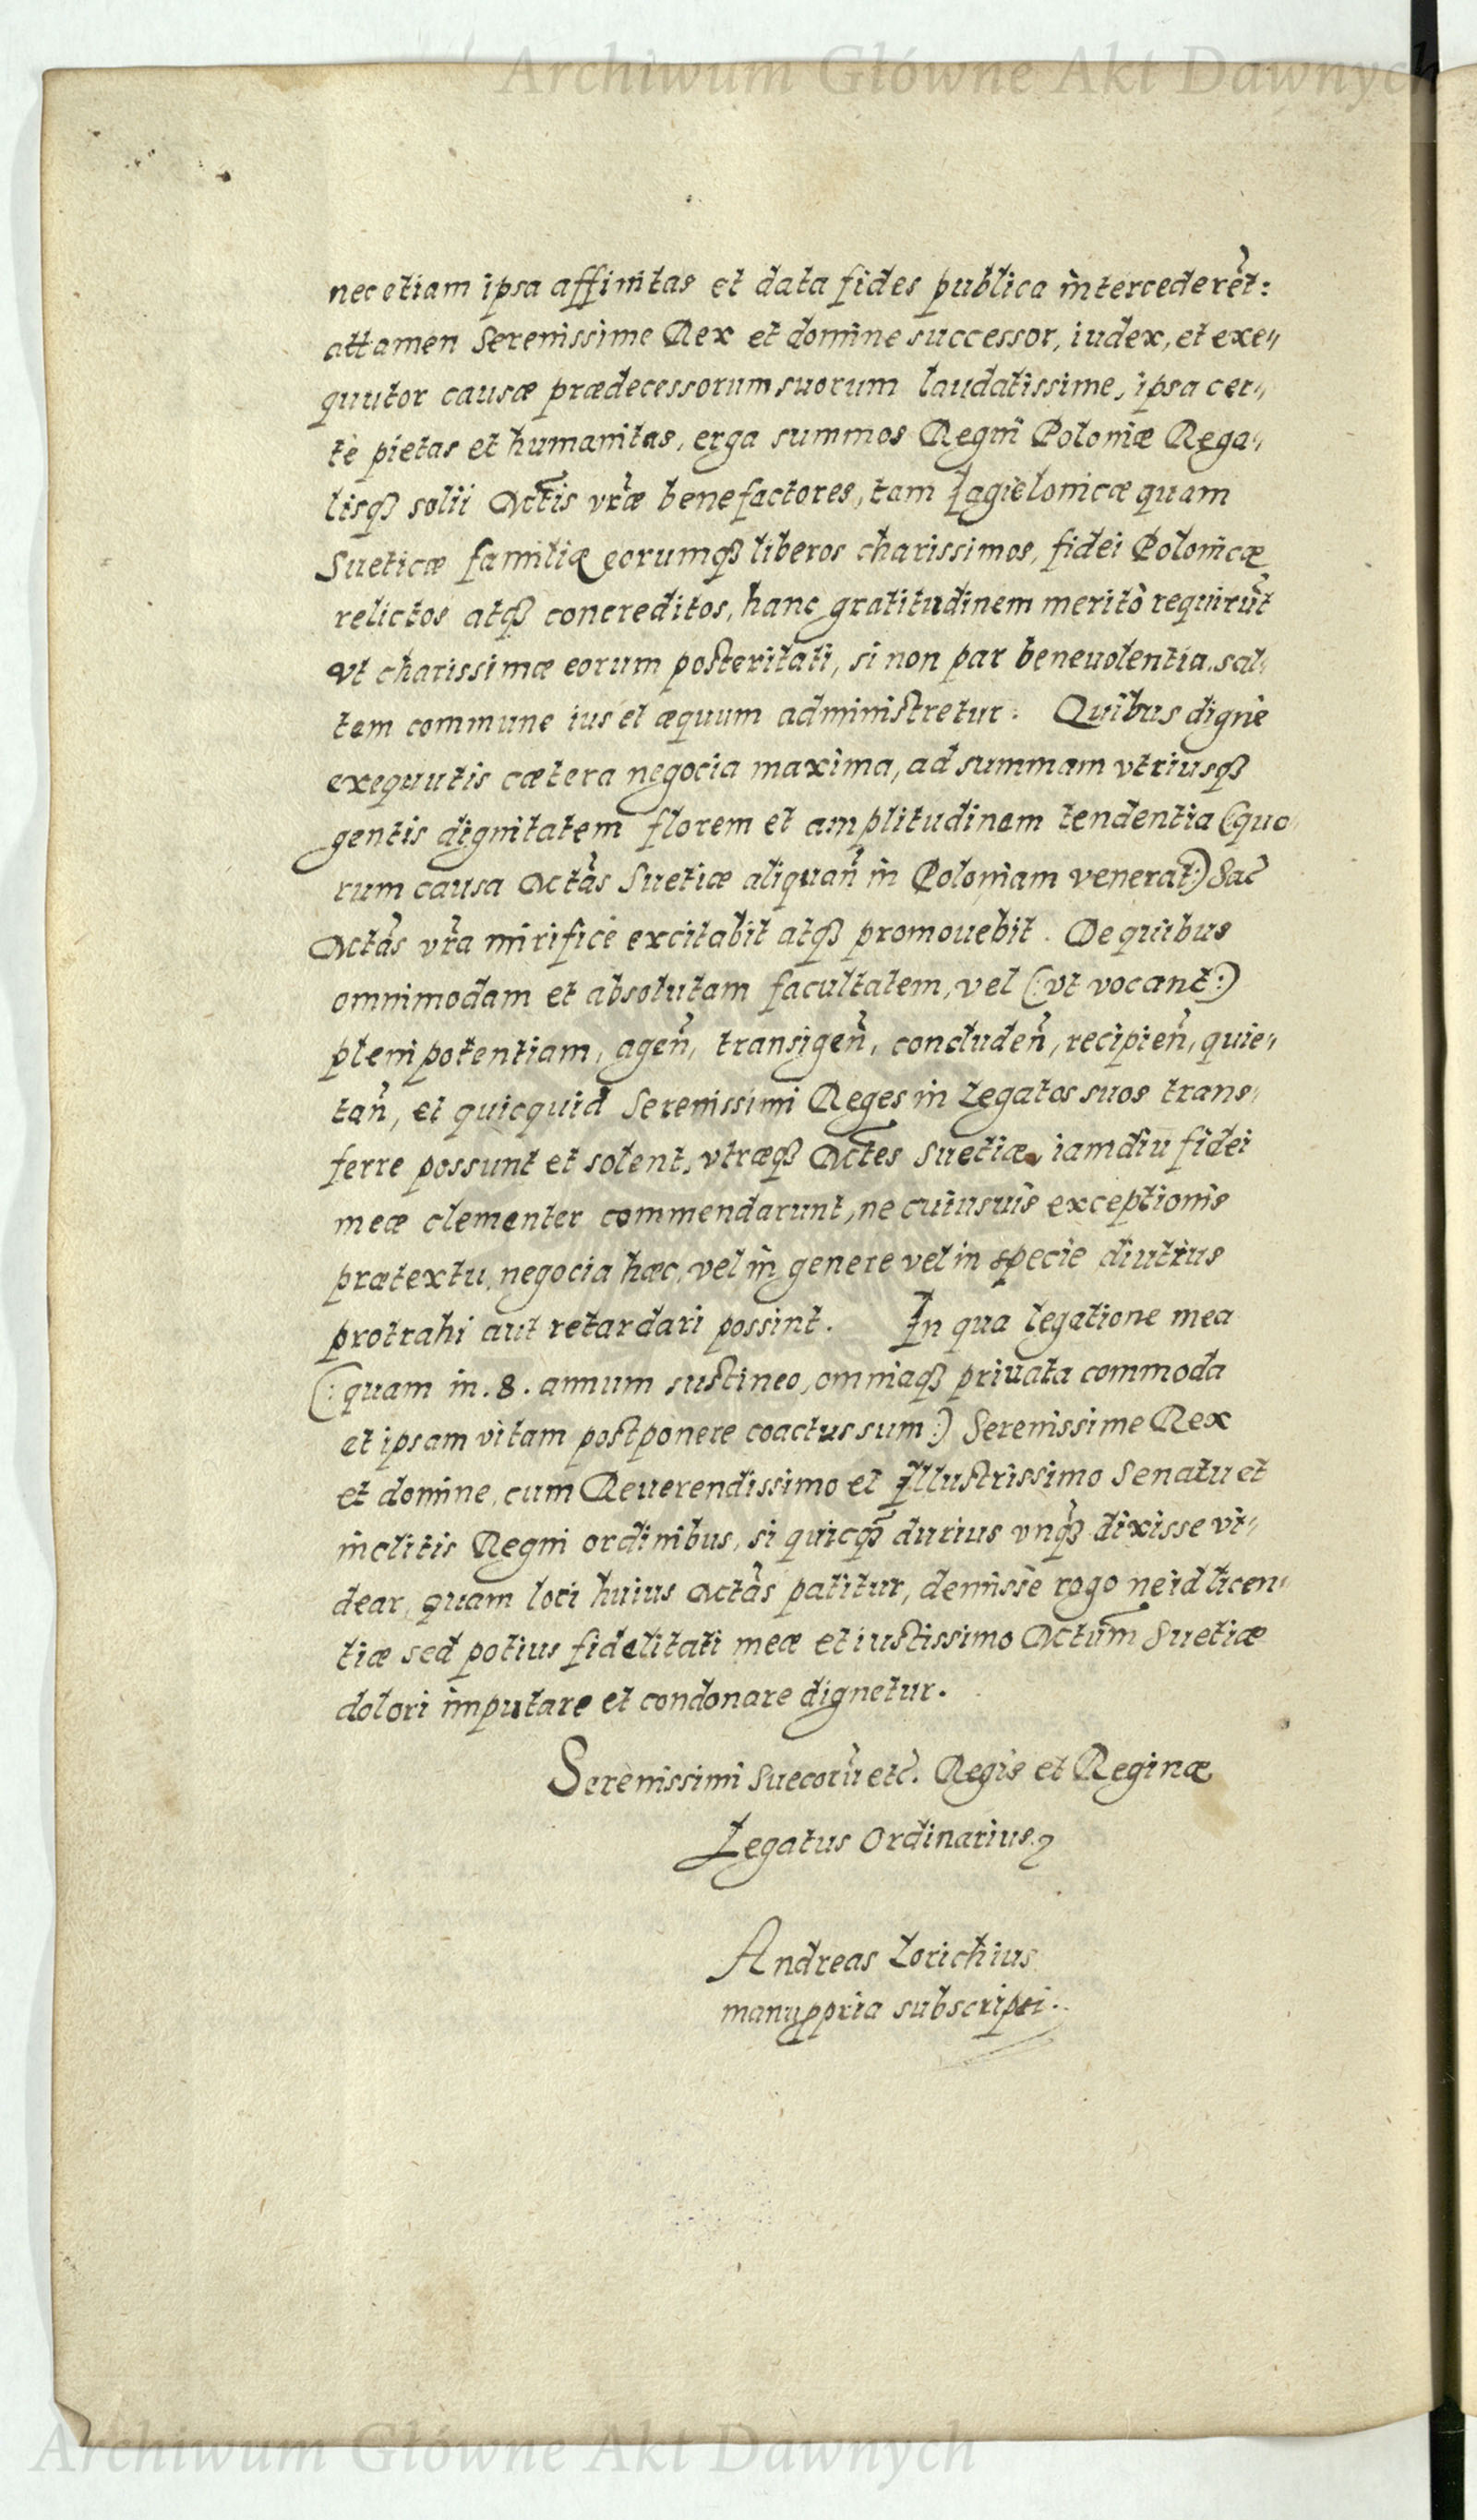 Archiwum Główne Akt Dawnych
nec etiam ipsa affinitas et data fides publica intercederẽt:
attamen Serenissime Rex et domine successor, iudex, et exe„
quutor causæ prædecessorum suorum laudatissime, ipsa cer„
tè pietas et humanitas, erga summos Regni Poloniæ Rega„
lisq₃ solii Mctis vr̃æ benefactores, tam Jagielonicæ quam
Sueticæ familiæ eorumq₃ liberos charissimos, fidei Polonicæ
relictos atq₃ concreditos, hanc gratitudinem meritò requirũt
vt charissimæ eorum posteritati, si non par beneuolentia, sal„
tem commune ius et æquum administretur: Quibus dignè
exequutis cætera negocia maxima, ad summam vtriusq₃
gentis dignitatem florem et amplitudinem tendentia (quo„
rum causa Mctãs Suetiæ aliquañ in Poloniam venerat:) Sac̃
Mctãs vr̃a mirificè excitabit atq₃ promouebit. De quibus
omnimodam et absolutam facultatem, vel (: vt vocant:)
plenipotentiam, ageñ, transigeñ, concludeñ, recipieñ, quie„
tañ, et quicquid Serenissimi Reges in Legatos suos trans„
ferre possunt et solent, vtræq₃ Mctes Suetiæ, iamdiu fidei
meæ clementer commendarunt, ne cuiusuis exceptionis
prætextu, negocia hæc, vel in genere vel in specie diutius
protrahi aut retardari possint. In qua legatione mea
(: quam in .8. annum sustineo, omniaq₃ priuata commoda
et ipsam vitam postponere coactus sum:) Serenissime Rex
et domine, cum Reuerendissimo et Illustrissimo Senatu et
inclitis Regni ordinibus, si quicq₃̃ durius vnq₃̃ dixisse vi„
dear, quam loci huius Mctãs patitur, demissè rogo ne id licen„
tiæ sed potius fidelitati meæ et iustissimo Mctum Suetiæ
dolori imputare et condonare dignetur.
Serenissimi Suecorũ etc̃. Regis et Reginæ
Legatus Ordinarius
Andreas Lorichius
manuppria subscripsi.
Archiwum Główne Akt Dawnych